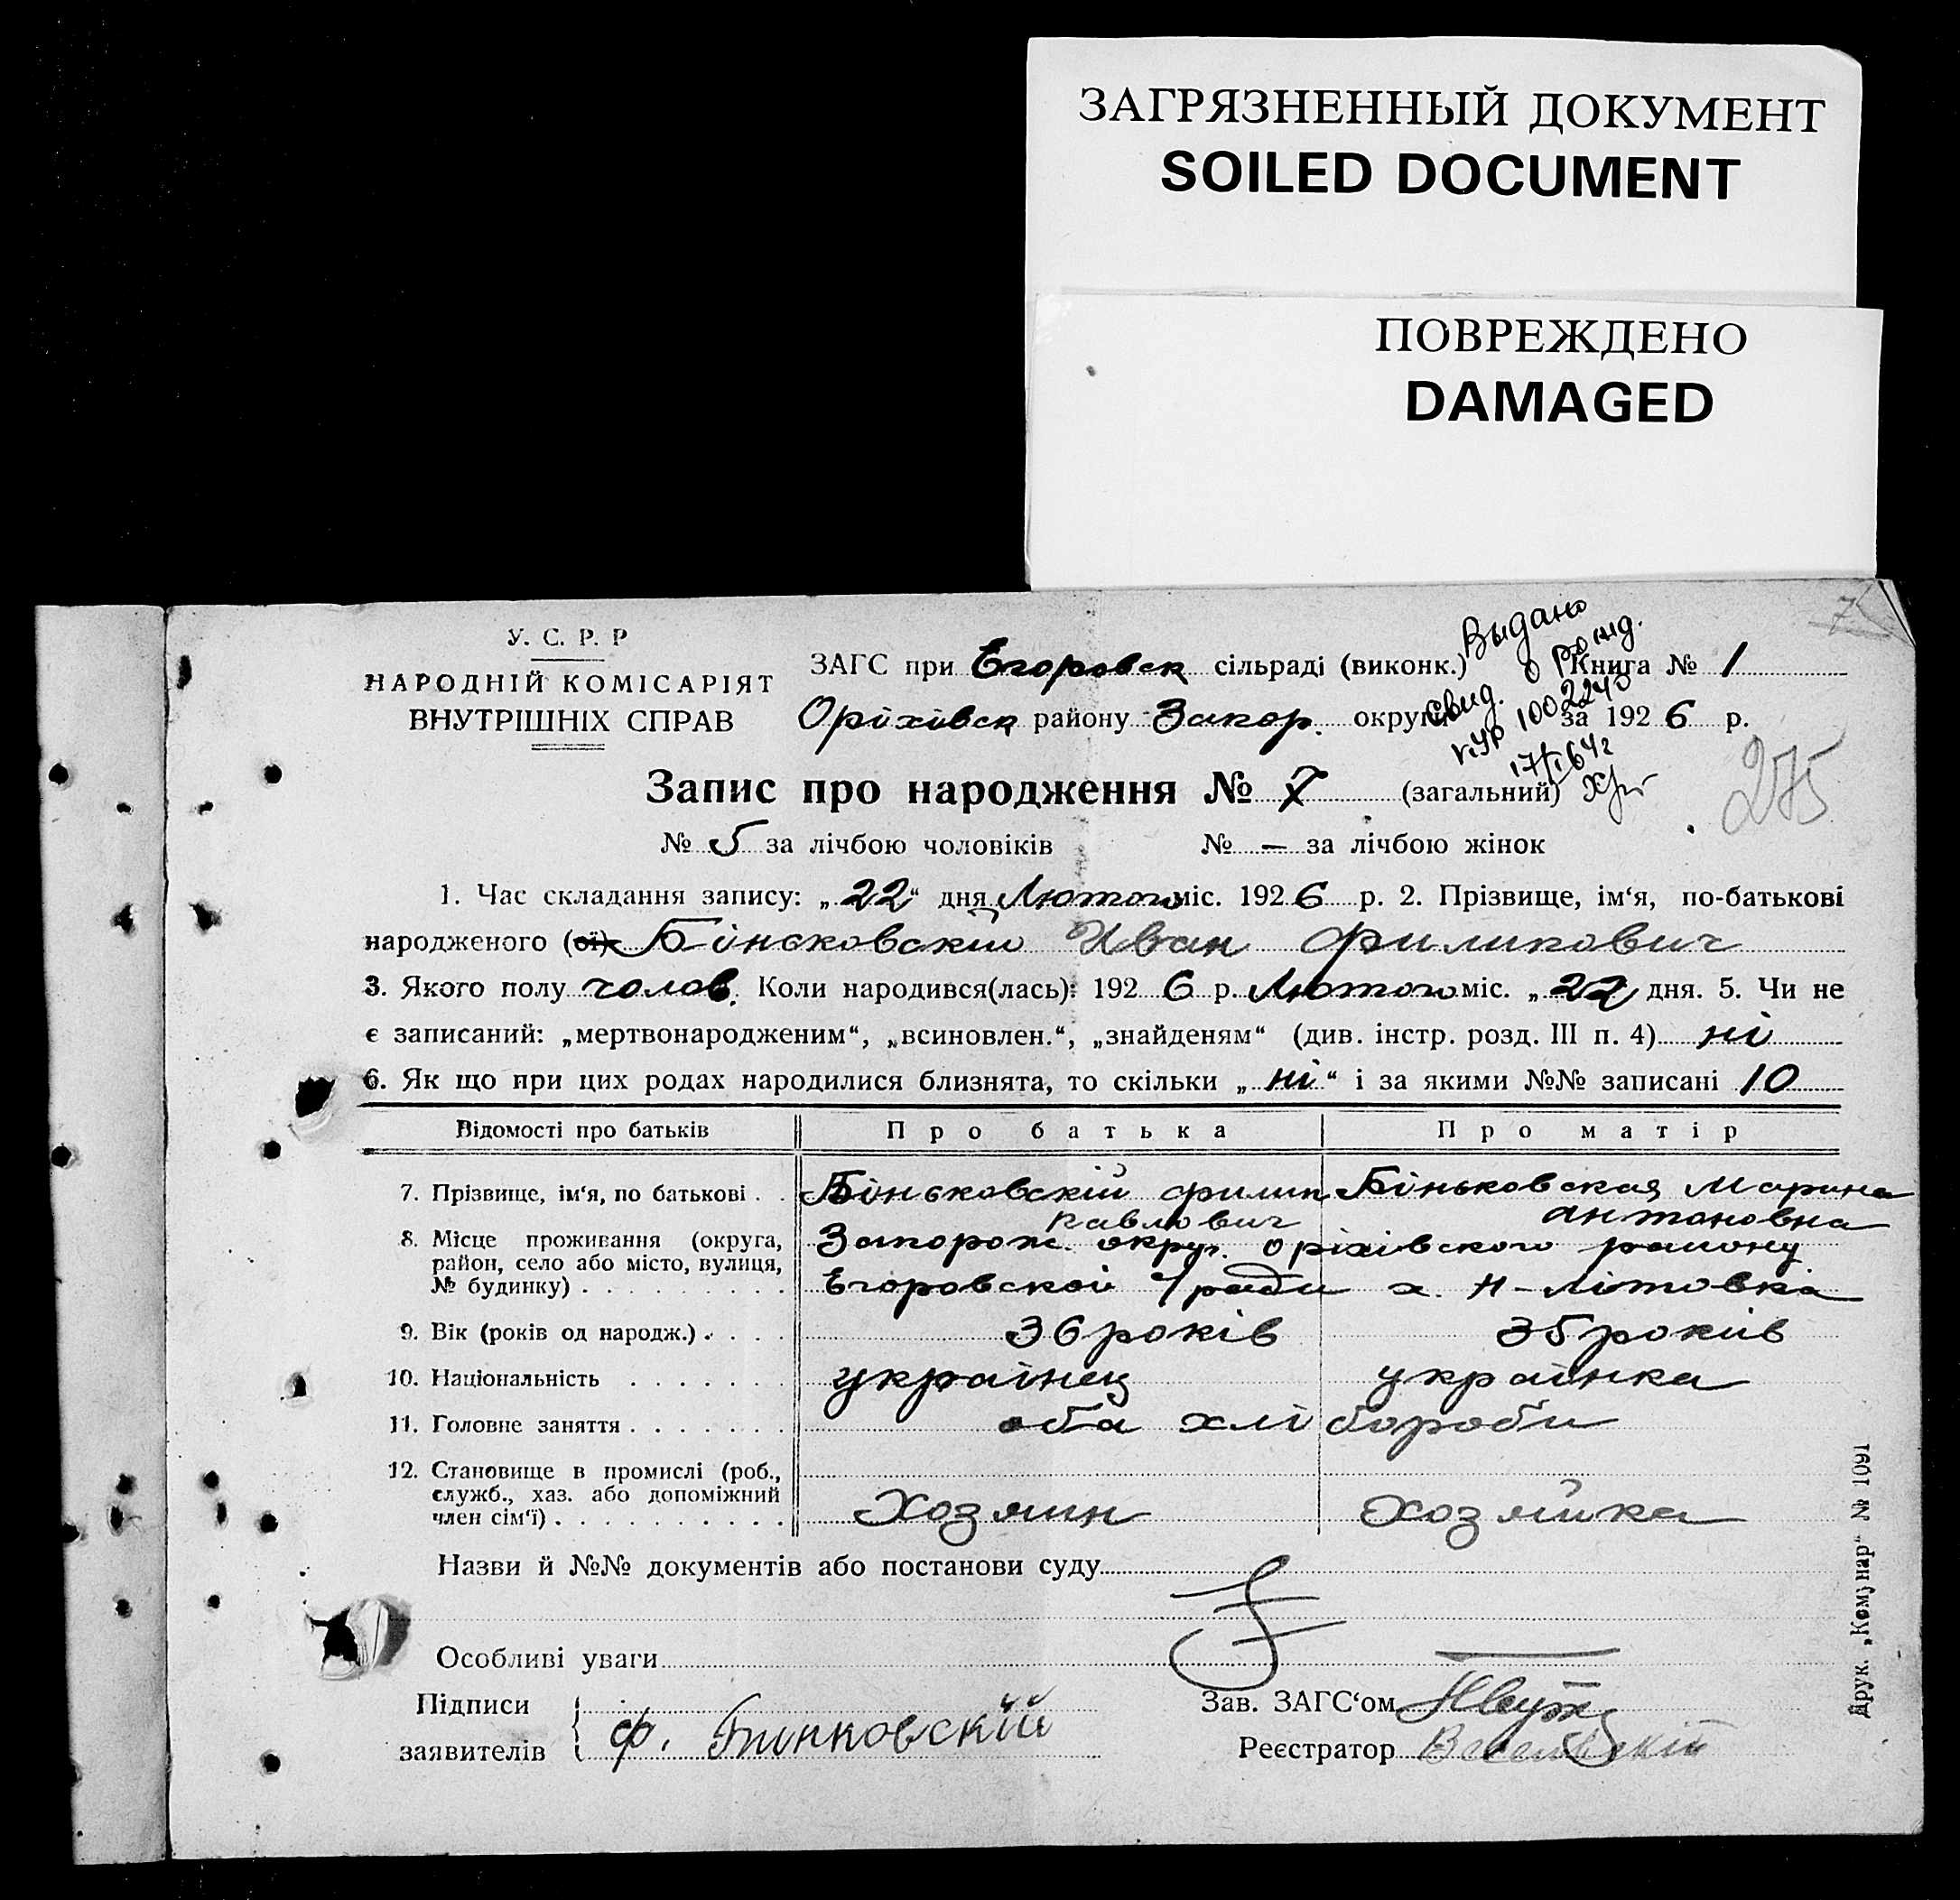 ЗАГРЯЗНЕННЫЙ ДОКУМЕНТ
SOILED DOCUMENT
ПОВРЕЖДЕНО
DAMAGED
У. С. Р. Р
НАРОДНІЙ КОМІСАРІЯТ
ВНУТРІШНІХ СПРАВ
Выдано
свид. о рожд.
ЗАГС при Егоровск сільраді (виконк.) Книга № 1
Оріхівск району Запор. округи за 1926 р.
1002240
Запис про народження № 7 (загальний)
275
№ 5 за лічбою чоловіків № — за лічбою жінок
1. Час складання запису: „22“ дня Лютого міс. 1926 р. 2. Прізвище, ім‘я, по-батькові
народженого (ої) Біньковский Иван Филипович
3. Якого полу чолов. Коли народився(лась): 1926 р. Лютого міс. „22 дня. 5. Чи не
є записаний: „мертвонародженим“, „всиновлен.“, „знайденям“ (див. інстр. розд. III п. 4) ні
6. Як що при цих родах народилися близнята, то скільки „ні“ і за якими №№ записані 10
Відомості про батьків Про батька Про матір
7. Прізвище, ім‘я, по батькові . . Біньковскій Филип Біньковская Марина
Павлович Антоновна
8. Місце проживання (округа, Запорож. округ. Оріхівского району
район, село або місто, вулиця,
№ будинку) . . . . . . . . . Егоровскої с/ради х. Н-Літовка
9. Вік (років од народж.) . . . . 36 років 35 років
10. Національність . . . . . . . українец українка
11. Головне заняття . . . . . . . оба хлібороби
12. Становище в промислі (роб.,
служб., хаз. або допоміжний
член сім‘ї) . . . . . . . . . . Хозяин Хозяйка
Назви й №№ документів або постанови суду
Особливі уваги
Підписи
заявителів
Ф. Бинковскій
Зав. ЗАГС‘ом
Реєстратор
Друк. „Комунар“ № 1091